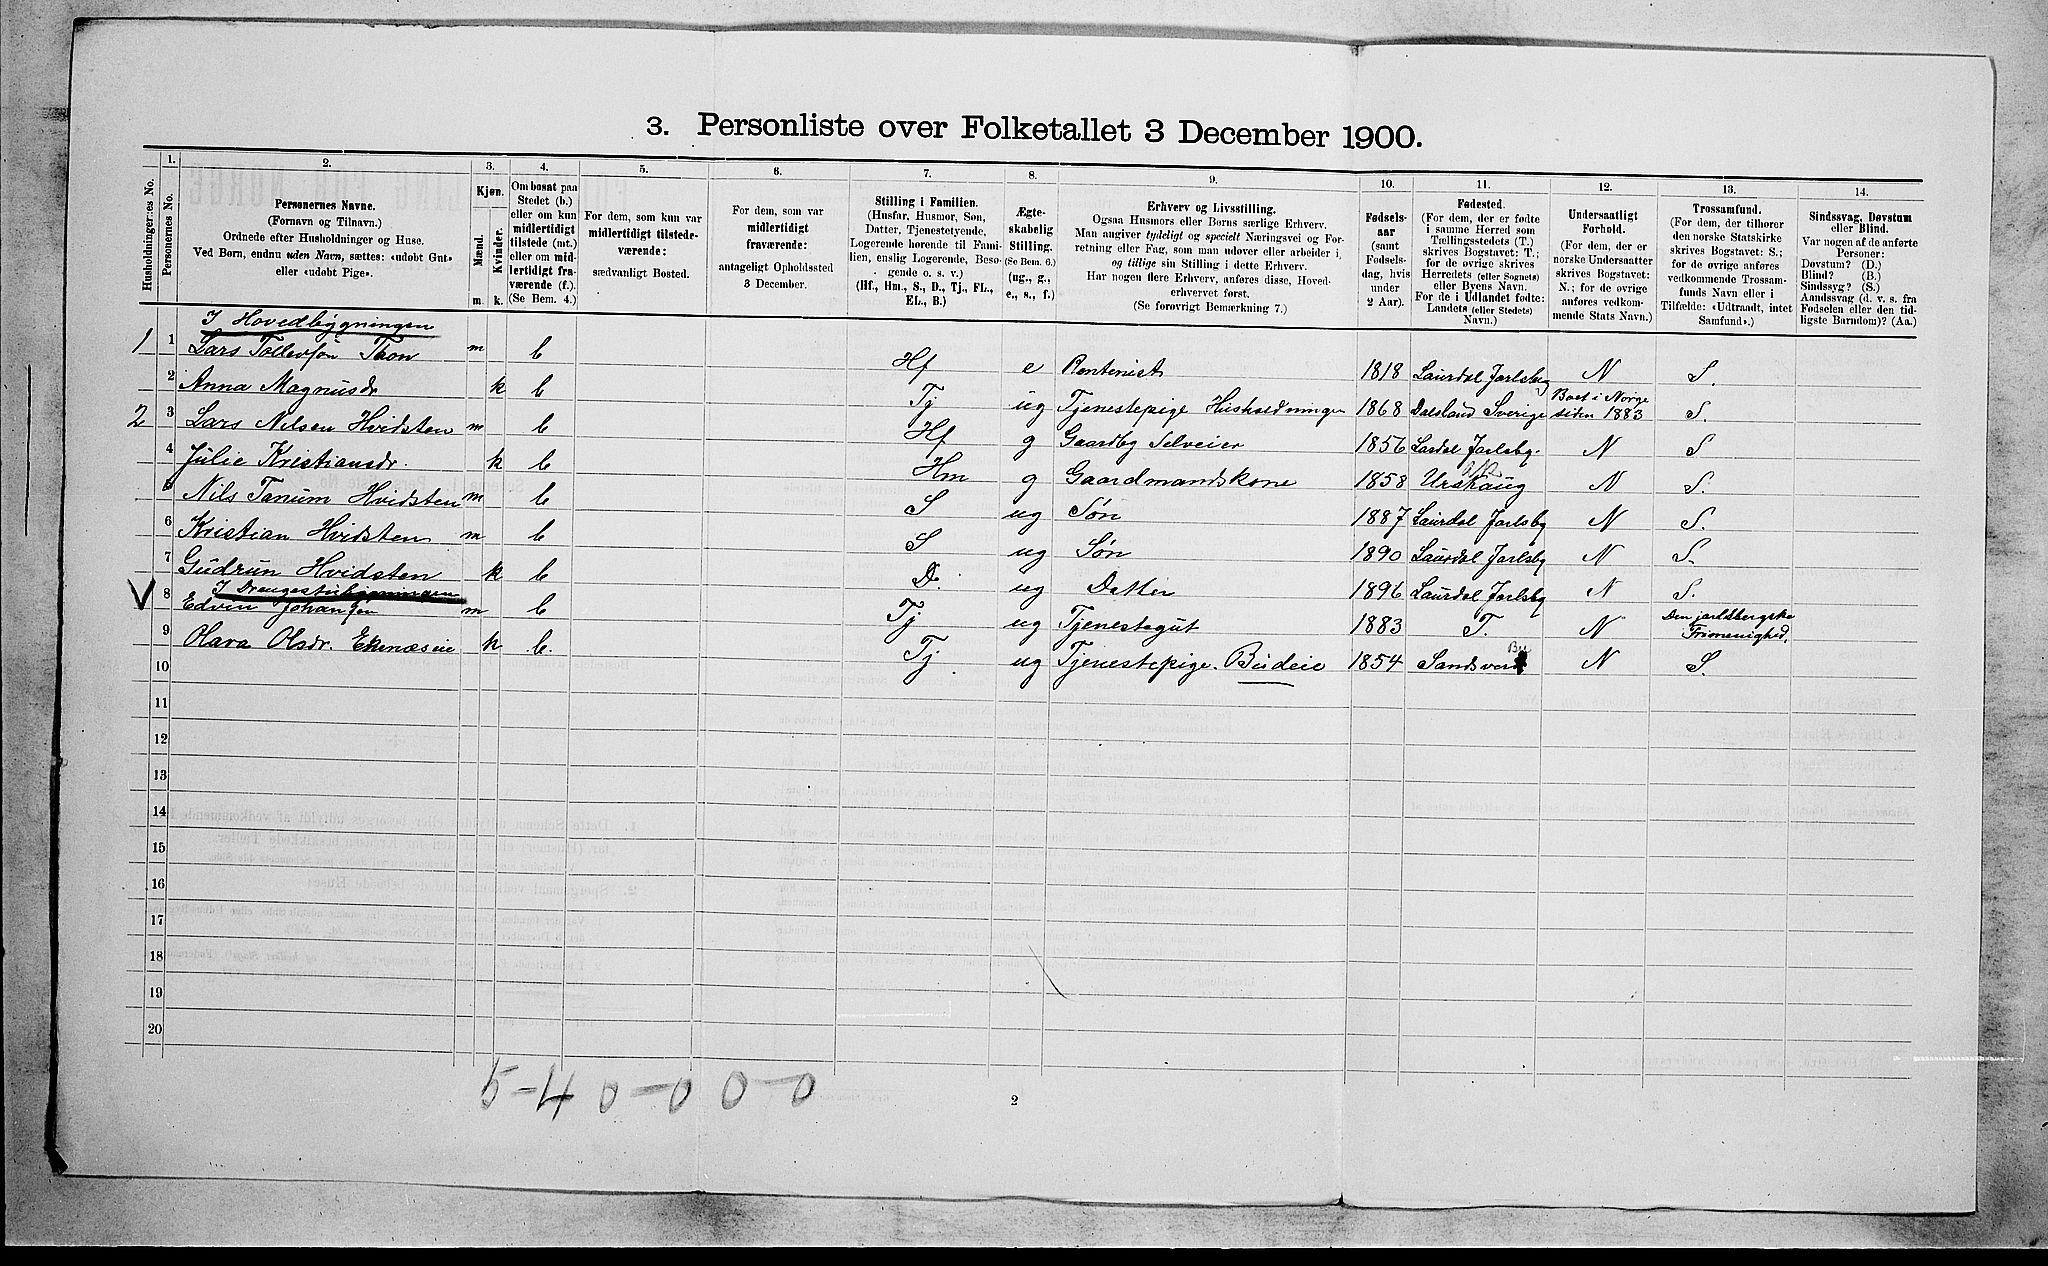 3. Personliste over Folketallet 3 December 1900.
Husholdningernes No.
1.
Personernes No.
2.
Personernes Navne.
(Fornavn og Tilnavn.)
Ordnede efter Husholdninger og Huse.
Ved Børn, endnu uden Navn, sættes: «udøbt Gut»
eller «udøbt Pige».
3.
Kjøn.
Mænd.
Kvinder.
m. k.
4.
Om bosat paa
Stedet (b.)
eller om kun
midlertidigt
tilstede (mt.)
eller om mid-
lertidigt fra-
værende (f.).
(Se Bem. 4.)
5.
For dem, som kun var
midlertidigt tilstede-
værende:
sædvanligt Bosted.
6.
For dem, som var
midlertidigt
fraværende:
antageligt Opholdssted
3 December.
7.
Stilling i Familien.
(Husfar, Husmor, Søn,
Datter, Tjenestetyende,
Logerende hørende til Fami-
lien, enslig Logerende, Besø-
gende o. s. v.)
(Hf., Hm., S., D., Tj., FL.,
EL., B.)
8.
Ægte-
skabelig
Stilling.
(Se Bem. 6.)
(ug., g.,
e., s., f.)
9.
Erhverv og Livsstilling.
Ogsaa Husmors eller Børns særlige Erhverv.
Man angiver tydeligt og specielt Næringsvei og For-
retning eller Fag, som man udøver eller arbeider i,
og tillige sin Stilling i dette Erhverv.
Har nogen flere Erhverv, anføres disse, Hoved-
erhvervet først.
(Se forøvrigt Bemærkning 7.)
10.
Fødsels-
aar
(samt
Fødsels-
dag, hvis
under
2 Aar).
11.
Fødested.
(For dem, der er fødte
i samme Herred som
Tællingsstedets (T.)
skrives Bogstavet: T.;
for de øvrige skrives
Herredets (eller Sognets)
eller Byens Navn.
For de i Udlandet fødte:
Landets (eller Stedets)
Navn.)
12.
Undersaatligt
Forhold.
(For de, der er
norske Undersaatter
skrives Bogstavet:
N.; for de øvrige
anføres vedkom-
mende Stats Navn.)
13.
Trossamfund.
(For dem, der tilhører
den norske Statskirke
skrives Bogstavet: S.;
for de øvrige anføres
vedkommende Trossam-
funds Navn eller i
Tilfælde: «Udtraadt, intet
Samfund».)
14.
Sindssvag, Døvstum
eller Blind.
Var nogen af de anførte
Personer:
Døvstum? (D.)
Blind? (B.)
Sindssyg? (S.)
Aandssvag (d. v. s. fra
Fødselen eller den tid-
ligste Barndom)? (Aa.)
I Hovedbygningen
1 1 Lars Tollevsön Thon m b Hf e Rentenist 1818 Laurdal Jarlsbg N S.
2 Anna Magnusdr k b Tj ug Tjenestepige Husholdningen 1868 Dalsland Sverige Boet i Norge siden 1883 S.
2 3 Lars Nilsen Hvidsten m b Hf g Gaardbg Selveier 1856 Lardal Jarlsbg. N S
4 Julie Kristiansdr. k b Hm g Gaardmandskone 1858 Urskaug N S.
5 Nils Tanum Hvidsten m b S ug Søn 1887 Laurdal Jarlsbg N S.
6 Kristian Hvidsten m b S ug Søn 1890 Laurdal Jarlsbg N S.
7 Gudrun Hvidsten k b D. ug Datter 1896 Laurdal Jarlsbg N S.
I Drengestubygningen
V 8 Edvin Johansen m b Tj ug Tjenestegut 1883 T. N Den jarlsbergske Frimenighed.
9 Olava Olsdr. Ekenæseie k b. Tj. ug Tjenestepige. Budeie 1854 Sandsver Bu N S.
10
11
12
13
14
15
16
17
18
19
20
0-0 0-0 4-5
2